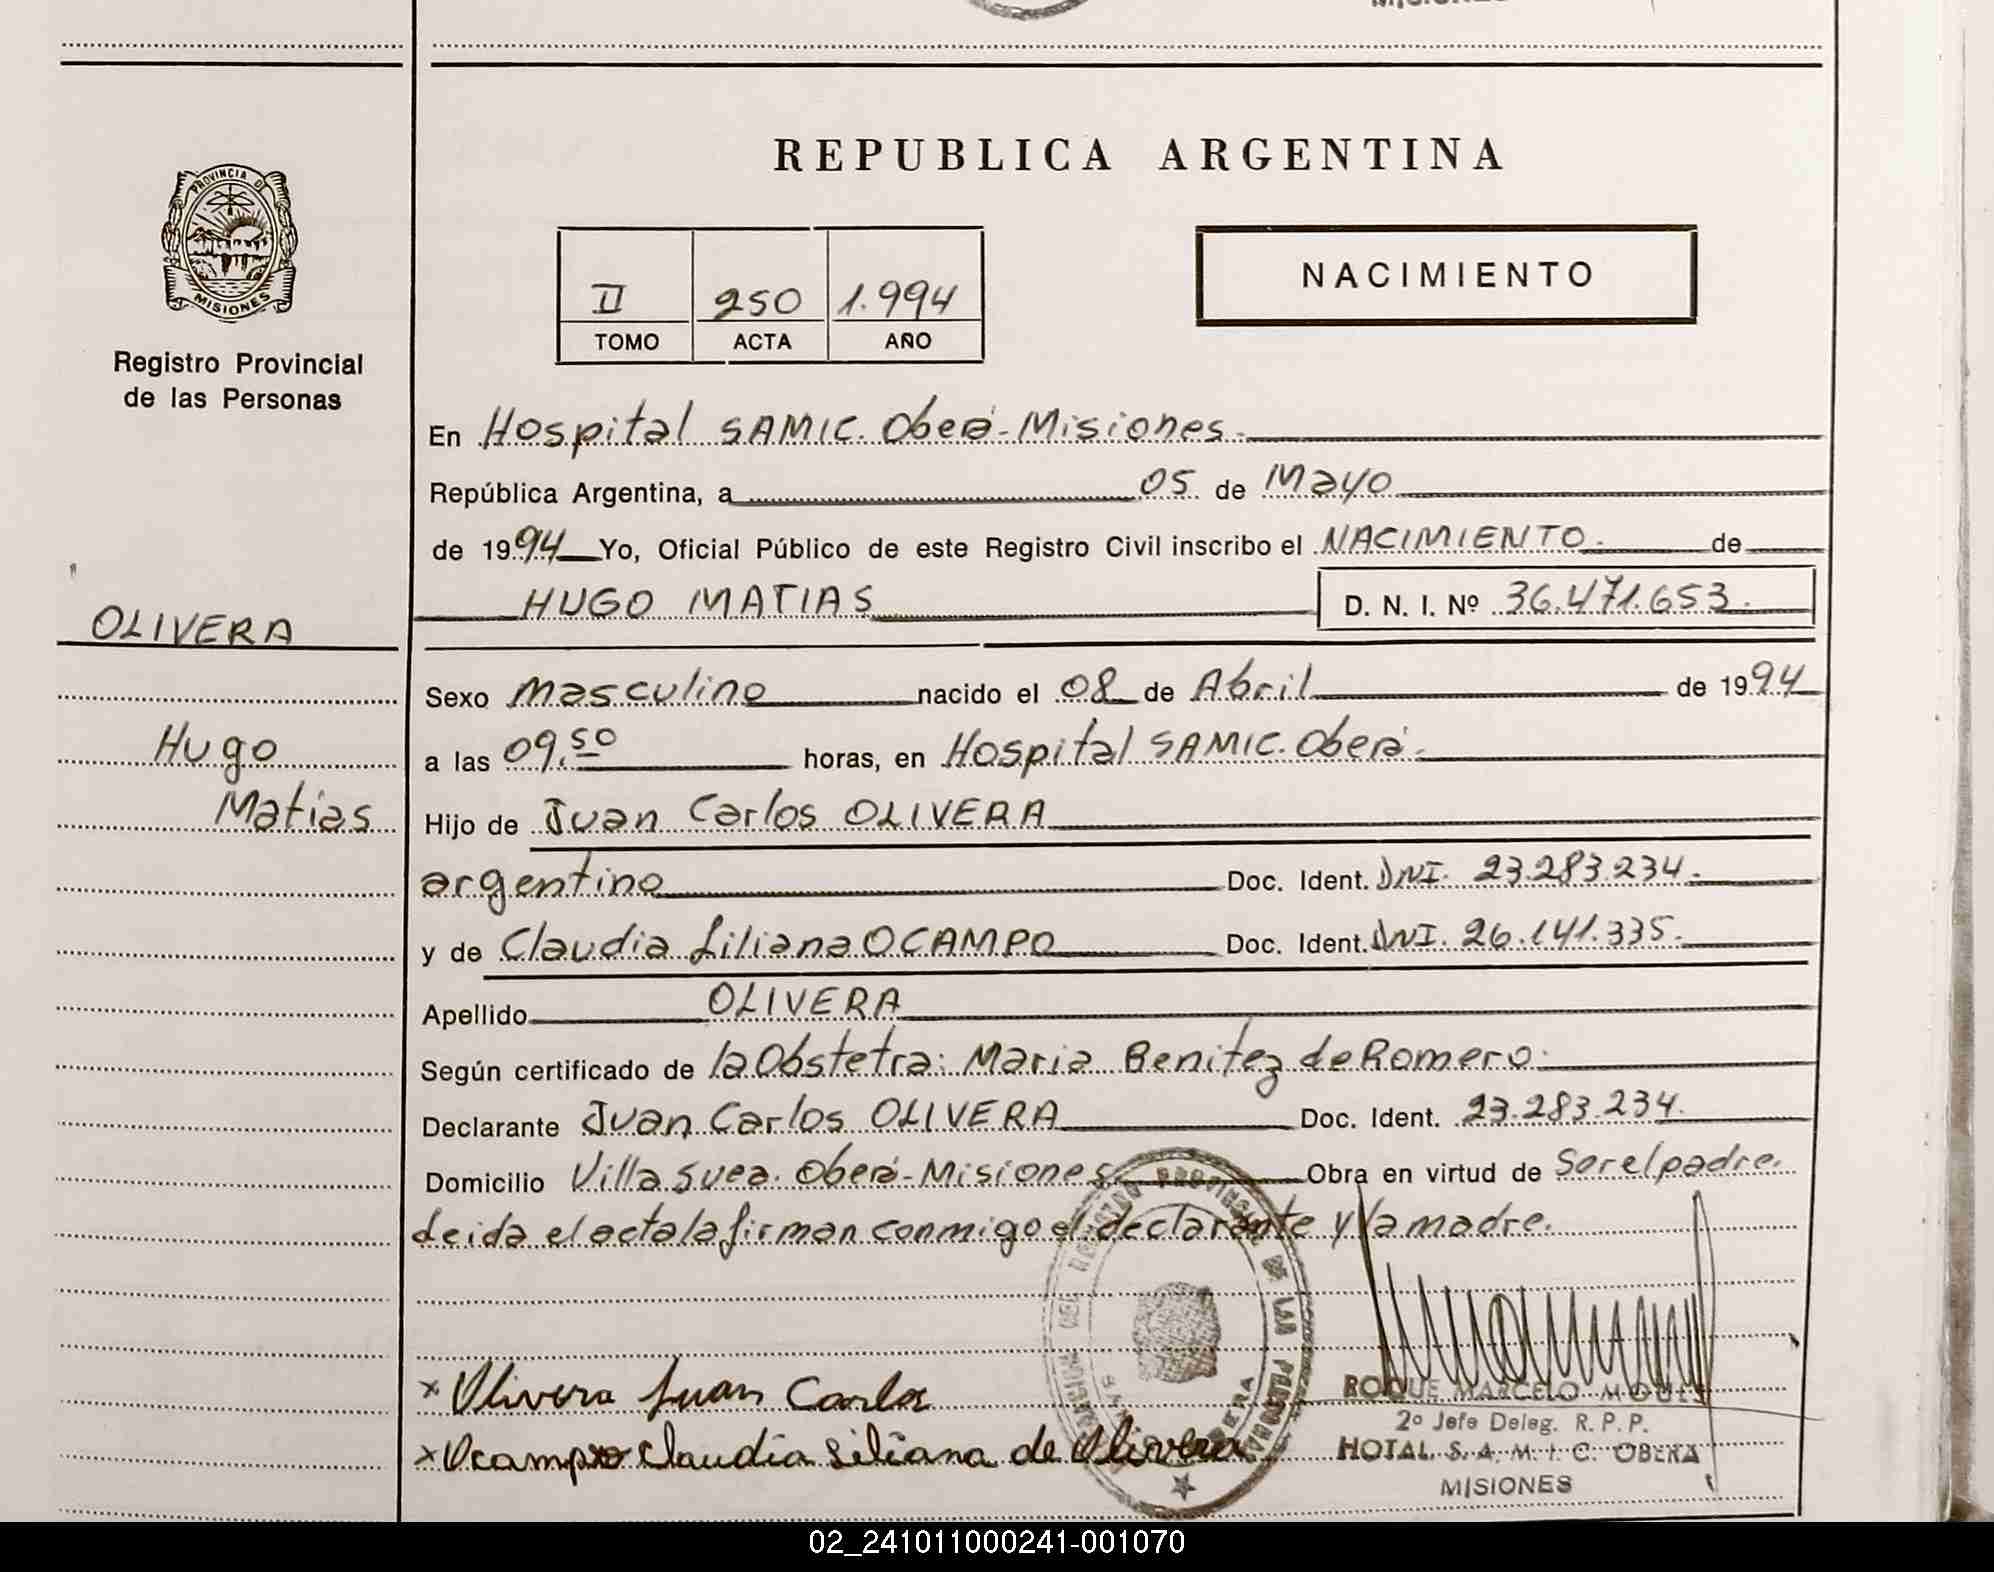 REPUBLICA ARGENTINA
PROVINCIA DE
MISIONES
Registro Provincial
de las Personas
II 250 1.994
TOMO ACTA AÑO
NACIMIENTO
En Hospital SAMIC. Oberá-Misiones.
República Argentina, a 05 de Mayo
de 1994 Yo, Oficial Público de este Registro Civil inscribo el NACIMIENTO. de
HUGO MATIAS D. N. I. Nº 36.471.653.
OLIVERA
Sexo masculino nacido el 08 de Abril de 1994
Hugo
a las 09.50 horas, en Hospital SAMIC. Oberá.
Matias
Hijo de Juan Carlos OLIVERA
argentino Doc. Ident. DNI. 23.283.234.
y de Claudia Liliana OCAMPO Doc. Ident. DNI. 26.141.335.
Apellido OLIVERA
Según certificado de la Obstetra: Maria Benitez de Romero.
Declarante Juan Carlos OLIVERA Doc. Ident. 23.283.234.
Domicilio Villa Svea. Oberá-Misiones Obra en virtud de Ser el padre.
Leida el acta la firman conmigo el declarante y la madre.
x Olivera Juan Carlos
x Ocampo Claudia Liliana de Olivera
ROQUE MARCELO
2º Jefe Deleg. R. P. P.
HOTAL S. A. M. I. C. OBERA
MISIONES
02_241011000241-001070